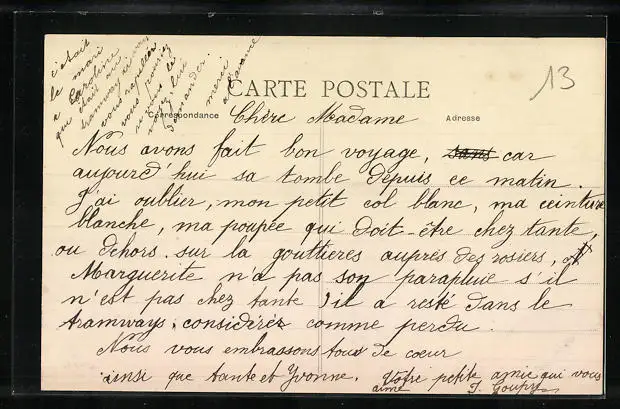 c'était
le mari
à Caroline
qui était au
tramway si vous
vous rappeler
vous pourriez
si vous le
voyez lui
demander.
merci
d'avance
13
CARTE POSTALE
Correspondance
Adresse
Chère Madame
Nous avons fait bon voyage, sans car
aujourd'hui sa tombe depuis ce matin.
J'ai oublier, mon petit col blanc, ma ceinture
blanche, ma poupée qui doit-être chez tante,
ou dehors sur la gouttières auprès des rosiers,
Marguerite n'a pas son parapluie s'il
n'est pas chez tante s'il a resté dans le
tramways, considérér comme perdu.
Nous vous embrassons tous de cœur
ainsi que tante et Yvonne. Votre petite amie qui vous
aime J. Goupy